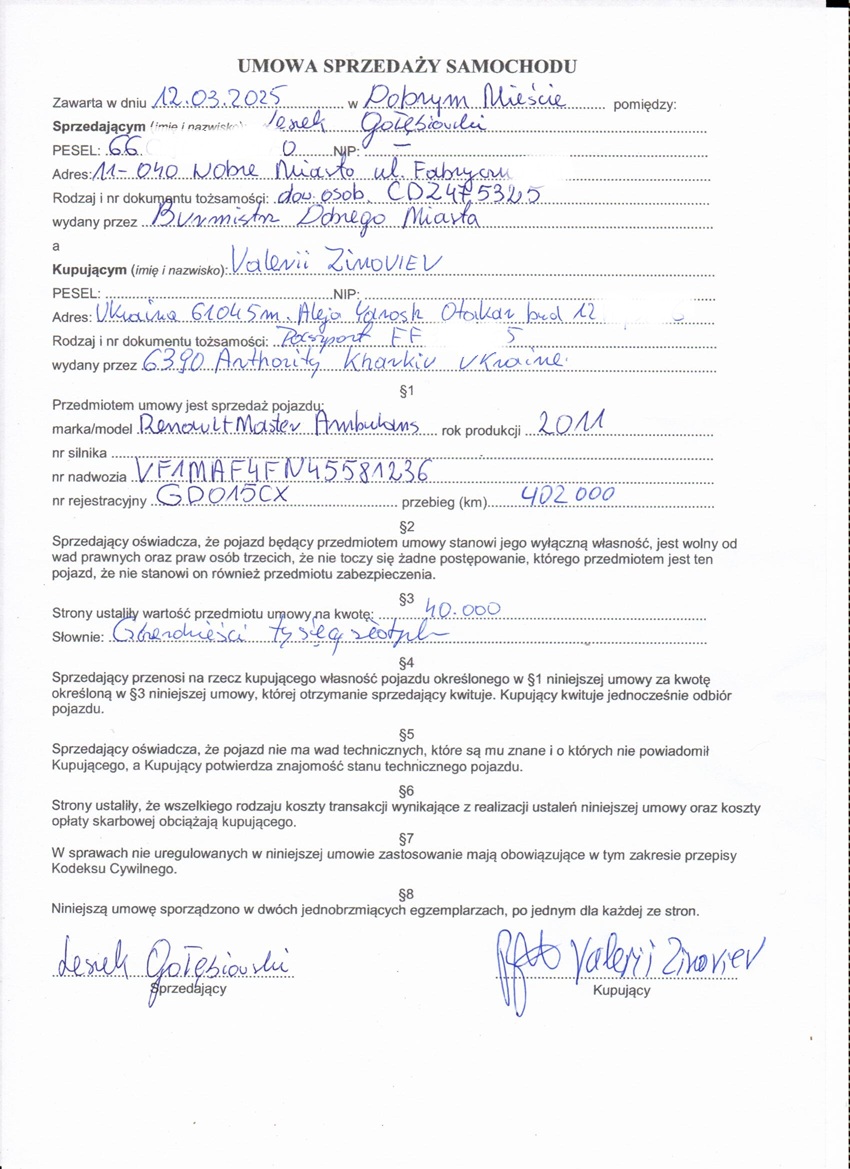 UMOWA SPRZEDAŻY SAMOCHODU
Zawarta w dniu 12.03.2025 w Dobrym Mieście pomiędzy:
Sprzedającym (imię i nazwisko): Lesiek Gołębiowski
PESEL: 66 0 NIP: —
Adres: 11-040 Dobre Miasto ul. Fabryczn
Rodzaj i nr dokumentu tożsamości: dow. osob. CD2475325
wydany przez Burmistrz Dobrego Miasta
a
Kupującym (imię i nazwisko): Valerii ZINOVIEV
PESEL: NIP:
Adres: Ukraina 61045 m. Aleja Otakar bud 12
Rodzaj i nr dokumentu tożsamości: Paszport FF 5
wydany przez 6390 Anthority Kharkiv Ukraine
§1
Przedmiotem umowy jest sprzedaż pojazdu:
marka/model Renault Master Ambulans rok produkcji 2011
nr silnika
nr nadwozia VF1MAF4FN45581236
nr rejestracyjny GD015CX przebieg (km) 402 000
§2
Sprzedający oświadcza, że pojazd będący przedmiotem umowy stanowi jego wyłączną własność, jest wolny od
wad prawnych oraz praw osób trzecich, że nie toczy się żadne postępowanie, którego przedmiotem jest ten
pojazd, że nie stanowi on również przedmiotu zabezpieczenia.
§3
Strony ustaliły wartość przedmiotu umowy na kwotę: 40.000
Słownie: tysięcy
§4
Sprzedający przenosi na rzecz kupującego własność pojazdu określonego w §1 niniejszej umowy za kwotę
określoną w §3 niniejszej umowy, której otrzymanie sprzedający kwituje. Kupujący kwituje jednocześnie odbiór
pojazdu.
§5
Sprzedający oświadcza, że pojazd nie ma wad technicznych, które są mu znane i o których nie powiadomił
Kupującego, a Kupujący potwierdza znajomość stanu technicznego pojazdu.
§6
Strony ustaliły, że wszelkiego rodzaju koszty transakcji wynikające z realizacji ustaleń niniejszej umowy oraz koszty
opłaty skarbowej obciążają kupującego.
§7
W sprawach nie uregulowanych w niniejszej umowie zastosowanie mają obowiązujące w tym zakresie przepisy
Kodeksu Cywilnego.
§8
Niniejszą umowę sporządzono w dwóch jednobrzmiących egzemplarzach, po jednym dla każdej ze stron.
Lesiek Gołębiowski Valerii Zinoviev
Sprzedający Kupujący